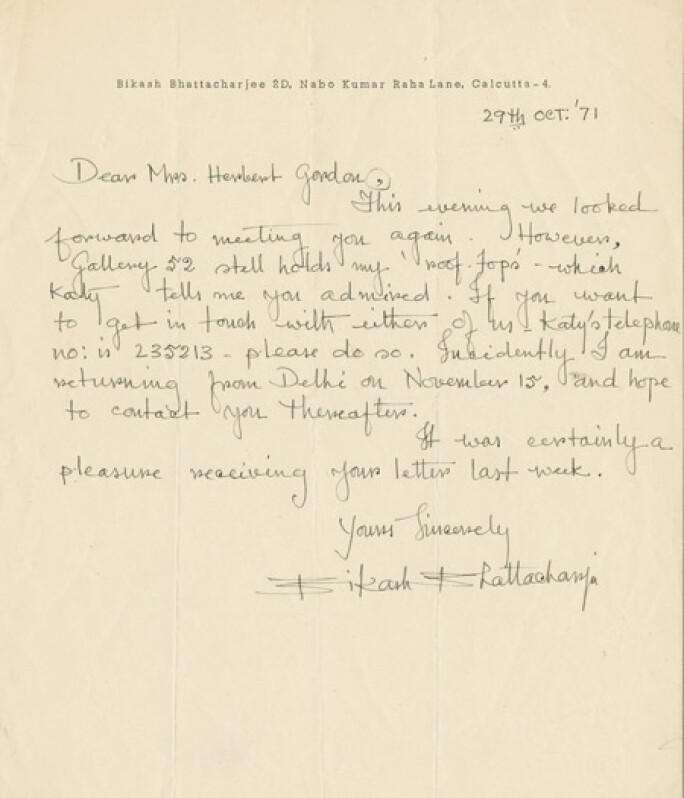 Bikash Bhattacharjee 2D, Nabo Kumar Raha Lane, Calcutta-4.
29th OCT: '71
Dear Mrs. Herbert Gordon,
This evening we looked
forward to meeting you again. However,
Gallery 52 still holds my 'roof-tops' - which
Katy tells me you admired. If you want
to get in touch with either of us - Katy's telephone
no: is 235213 - please do so. Incidently I am
returning from Delhi on November 15, and hope
to contact you thereafter.
It was certainly a
pleasure receiving your letter last week.
Yours Sincerely
Bikash Bhattacharjee